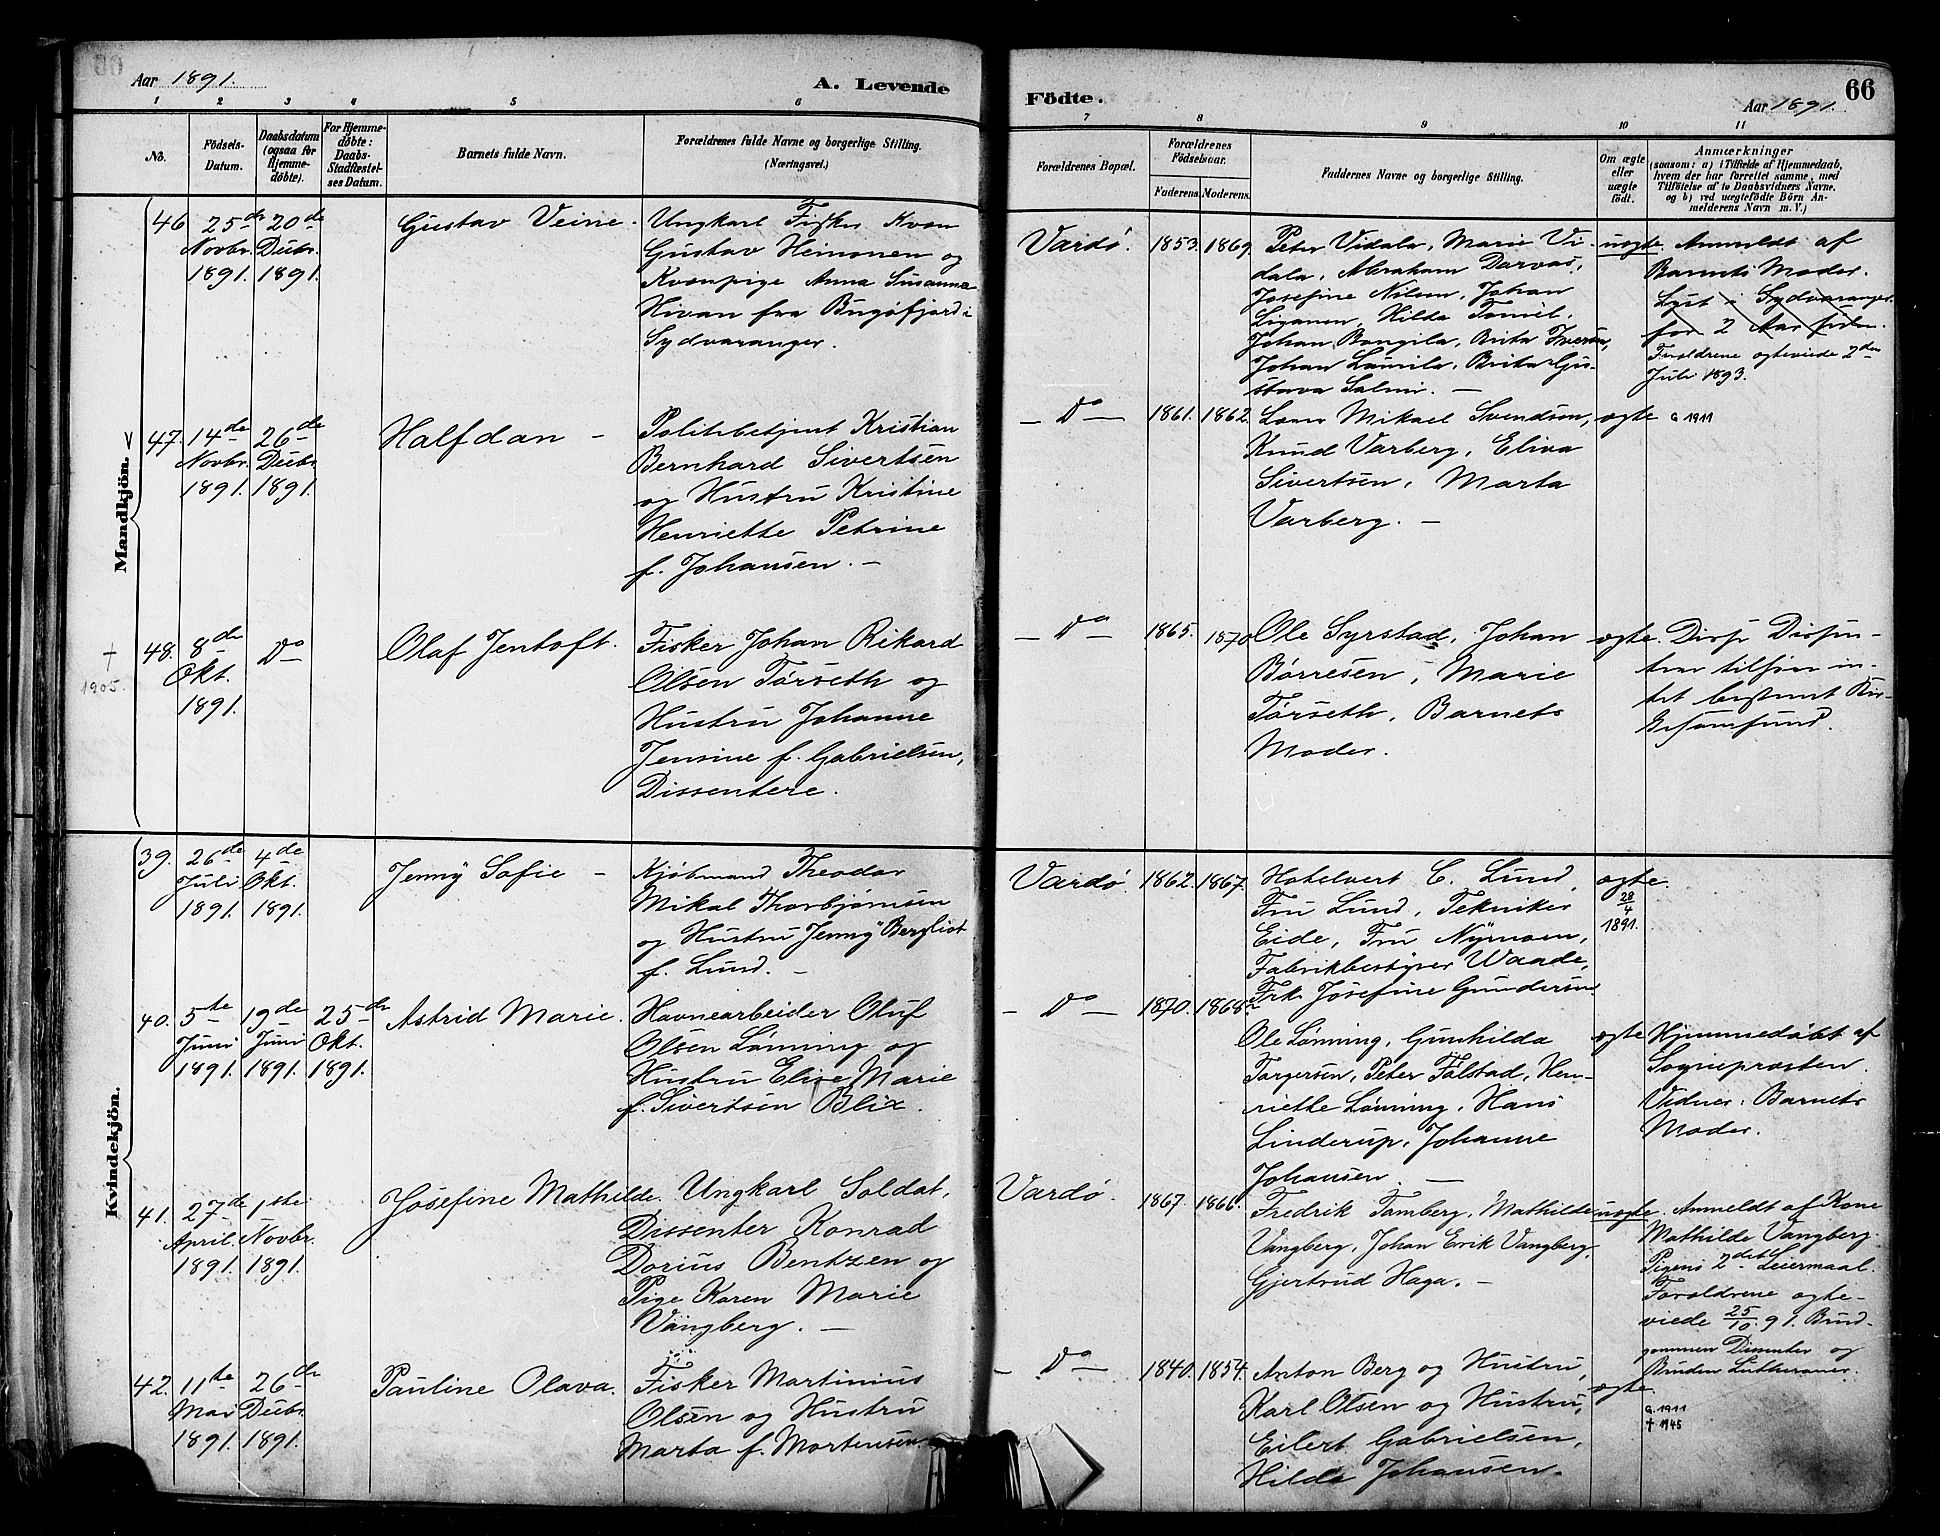 Aar 1891.
A. Levende
Födte.
Aar 1891.
66
1 2 3 4 5 6 7 8 9 10 11
No.
Födsels-
Datum.
Daabsdatum
(ogsaa for
Hjemme-
döbte).
For Hjemme-
döbte:
Daabs-
Stadfæstel-
ses Datum.
Barnets fulde Navn.
Forældrenes fulde Navne og borgerlige Stilling.
(Næringsvei.)
Forældrenes Bopæl.
Forældrenes
Födselsaar.
Faderens.
Moderens.
Faddernes Navne og borgerlige Stilling.
Om ægte
eller
uægte
født.
Anmærkninger
(saasom: a) i Tilfælde af Hjemmedaab,
hvem der har forrettet samme, med
Tilföielse af to Daabsvidners Navne,
og b) ved uægtefödte Börn An-
melderens Navn m. V.)
Mandkjön.
46
25de
Novbr.
1891.
20de
Decbr.
1891.
Gustav Veine.
Ungkarl Fisker Kvæn
Gustav Heimonen og
Kvænpige Anna Susanna
Hivan fra Bugøfjord i
Sydvaranger.
Vardø.
1853.
1869.
Peter Vidala, Marie Vi-
dala, Abraham Darvas,
Josefine Nilsen, Johan
Liganen, Hilda Tomil.
Johan Bongila, Brita Iversen,
Johan Lamila, Brita Gu-
stava Salmi. —
uægte.
Anmeldt af
Barnets Moder.
Lyst i Sydvaranger
for 2 Aar siden.
Forældrene ægteviede 2den
Juli 1893.
47.
14de
Novbr.
1891.
26de
Decbr.
1891.
Halfdan —
Politibetjent Kristian
Bernhard Sivertsen
og Hustru Kristine
Henriette Petrine
f. Johansen. —
— Do —
1861.
1862.
Lars Mikael Svendsen,
Knud Varberg, Eliva
Sivertsen, Marta
Varberg. —
ægte
G 1911
†
1905.
48.
8de
Okt.
1891.
Do
Olaf Jentoft.
Fisker Johan Rikard
Olsen Tørseth og
Hustru Johanne
Jensine f. Gabrielsen,
Dissentere.
— Do —
1865.
1870
Ole Syrstad, Johan
Børresen, Marie
Tørseth, Barnets
Moder.
ægte.
tet bestemt Kir-
kesamfund.
Kvindekjön.
39.
26de
Juli
1891.
4de
Okt.
1891.
Jenny Sofie —
Kjøbmand Theodor
Mikal Thorbjørnsen
og Hustru Jenny Bergliot
f. Lund. —
Vardø.
1862.
1867.
Hotelvert C. Lund,
Fru Lund, Tekniker
Eide, Fru Nyrnoen,
Fabrikbestyrer Waade,
Frk. Josefine Gundersen
ægte.
28/4
1891.
40.
5te
Juni
1891.
19de
Juni
1891.
25de
Okt.
1891.
Astrid Marie.
Havnearbeider Oluf
Olsen Lønning og
Hustru Elise Marie
f. Sivertsen Blix.
— Do —
1870.
1868.
Ole Lønning, Gunhilda
Torgersen, Peter Falstad, Hen-
riette Lønning, Hans
Linderup, Johanne
Johansen. —
ægte
Hjemmedøbt af
Sognepræsten.
Vidner: Barnets
Moder.
41.
27de
April.
1891.
1ste
Novbr.
1891.
Josefine Mathilde.
Ungkarl Soldat,
Dissenter Konrad
Dorius Bentzen og
Pige Karen Marie
Vangberg. —
Vardø.
1867.
1866.
Fredrik Tamberg, Mathilde
Vangberg, Johan Erik Vangberg,
Gjertrud Haga. —
uægte.
Anmeldt af Kone
Mathilde Vangberg.
Pigens 2det Leiermaal.
Forældrene ægte-
viede 25/10 91. Brud-
gommen Dissenter og
Bruden Lutheraner.
42.
11te
Mai
1891.
26de
Decbr.
1891.
Pauline Olava.
Fisker Martinius
Olsen og Hustru
Marta f. Mortensen.
— Do —
1840.
1854.
Anton Berg og Hustru,
Karl Olsen og Hustru,
Eilert Gabrielsen,
Hilda Johansen. —
ægte
G. 1911
† 1945